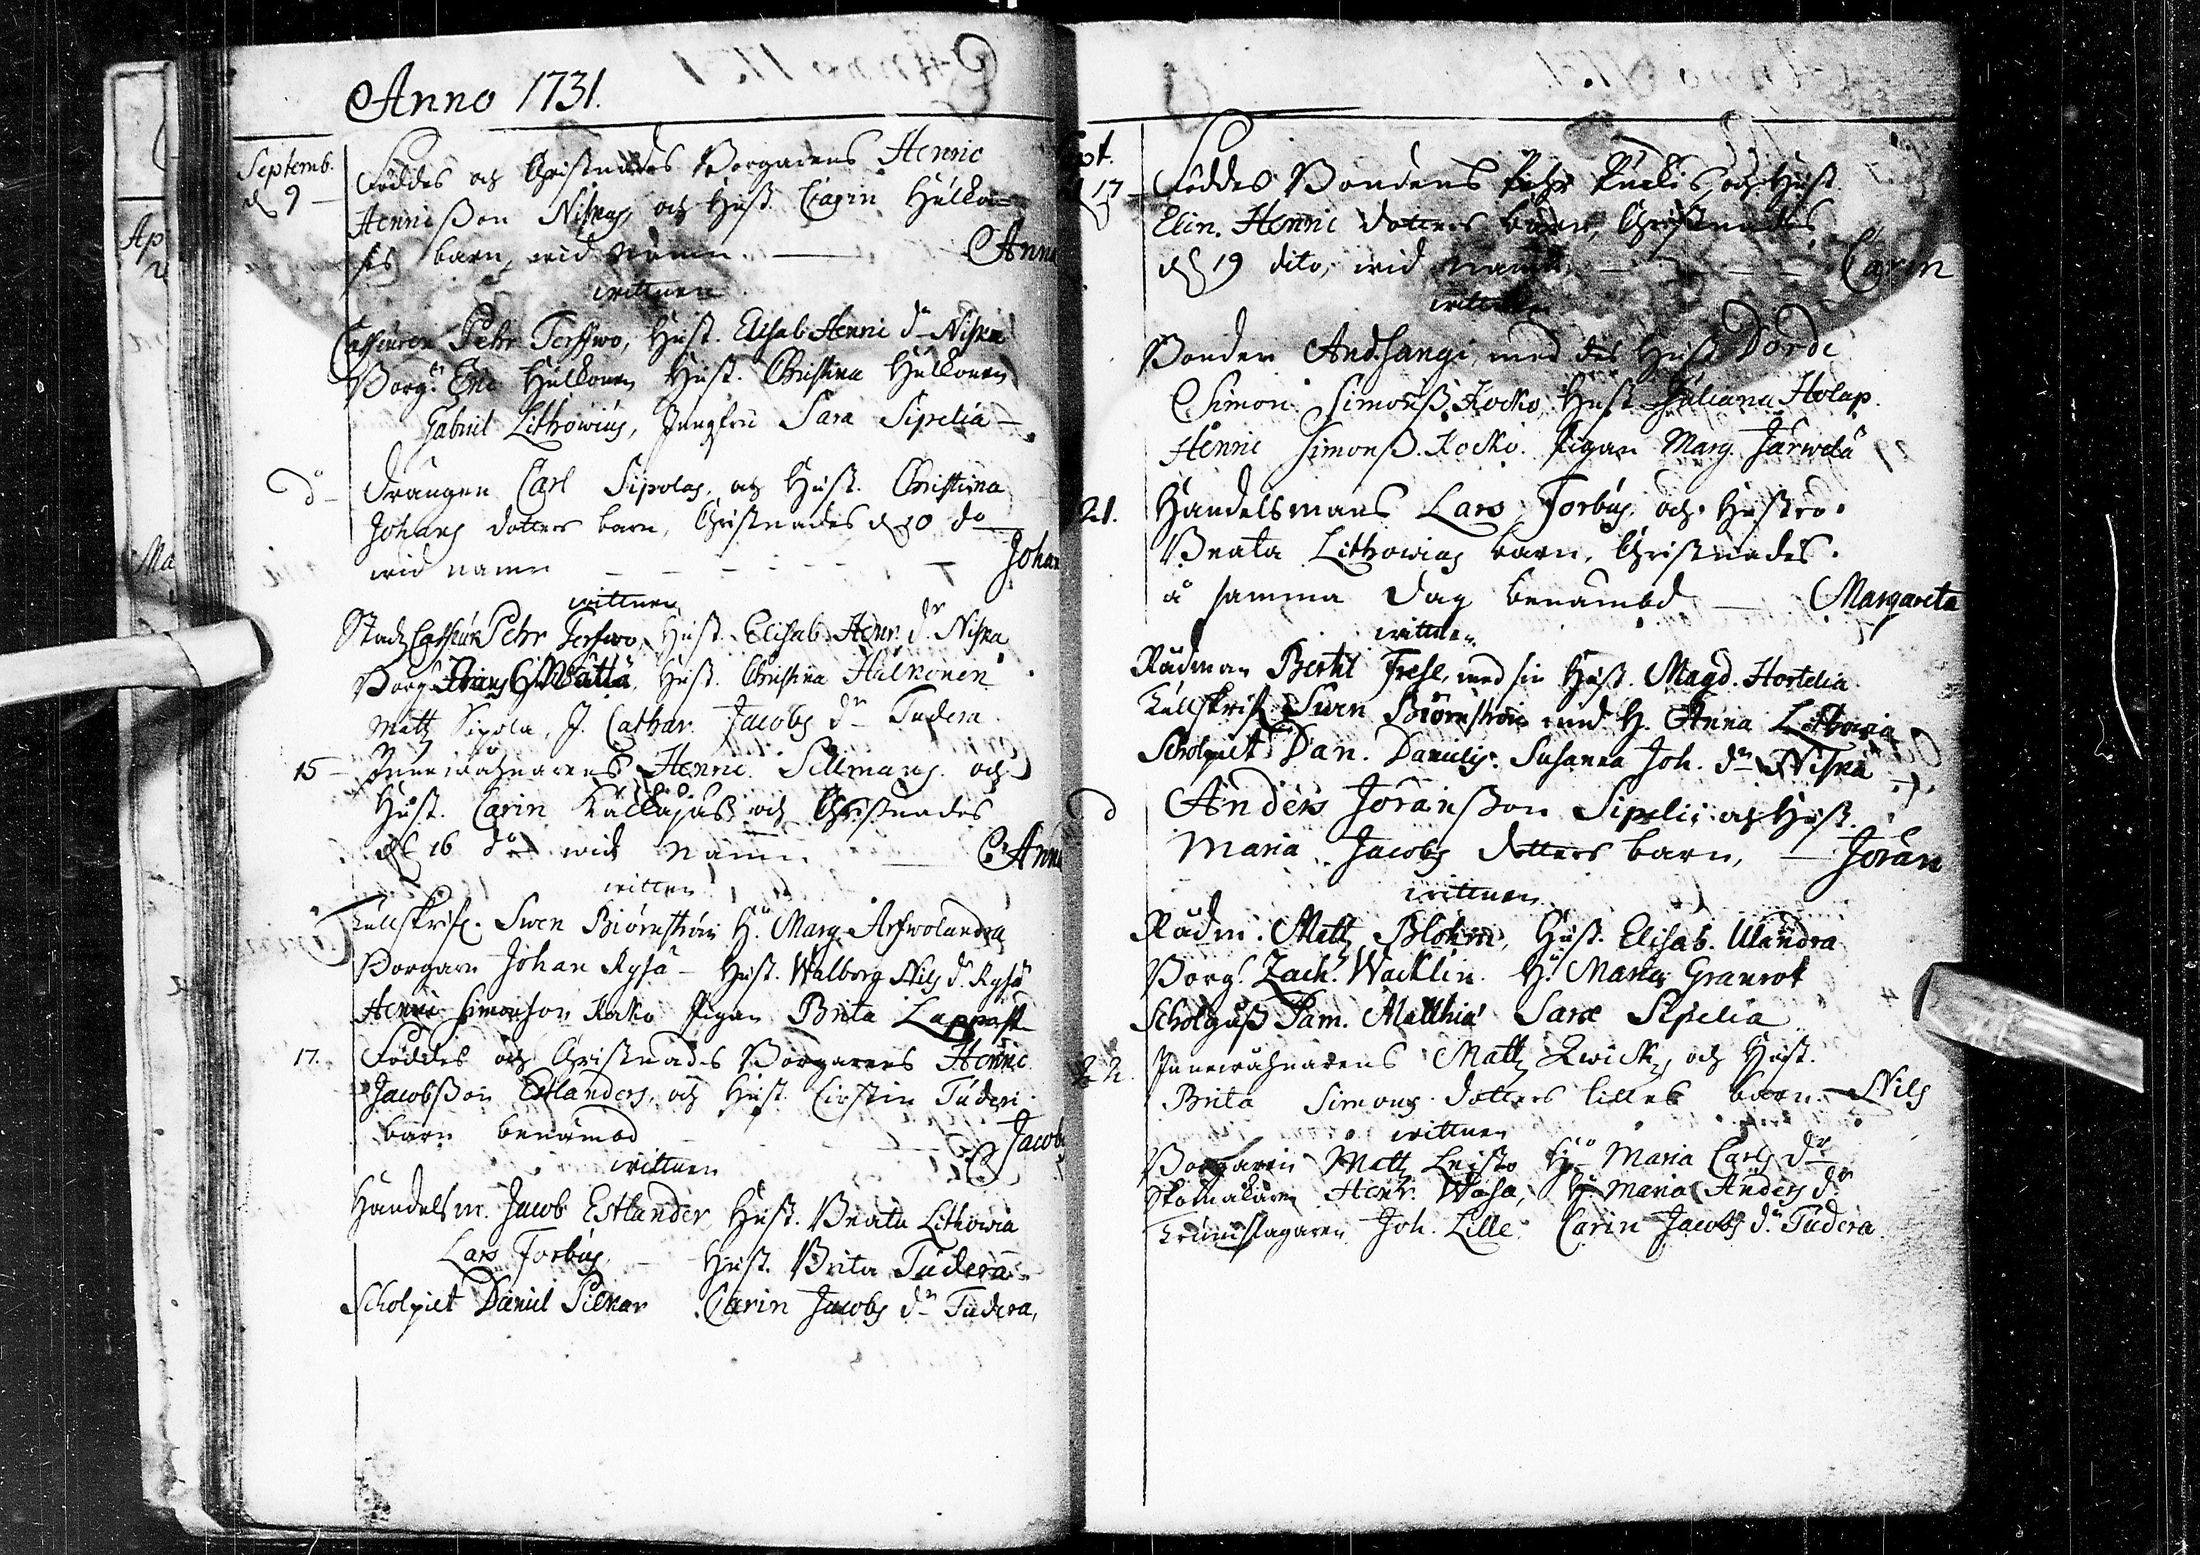 Anno 1731.
Septemb.
d 9 Föddes och Christnades Borgarens Henric
Henrisson Niskas, och Hust. Carin Hulko-
sis barn, wid namn Anna
wittnen
Petr Terffwo, Hust. Elisab. Henri dr Niska
Borg. Eric Hulkonen Hust. Christina Hulkonen
Gabriel Lithowius, Jungfru Sara Sipelia
do Drängen Carl Sipolas, och Hust. Christina
Johans dotters barn, Christnades d 10 do
wid namn Johan
wittnen
Stadz Petr Terffwo, Hust. Elisab. Henr. dr Niska
Borg. Hust. Christina Hulkonen
Matz Sipola, J. Cathar. Jacobs dr Tudera
15 Henric Sillmans och
Hust. Carin och Christnades
d 16 do wid namn Anna
wittnen
Tullskrif. Swen Biörnström H. Marg. Arfwolandra
Borgare Johan Rysä Hust. Walborg Nils dr Rysä
Henric Simonson Kocko Pigan Brita
17. Föddes och Christnades Borgarens Henric
Jacobsson Estlanders, och Hust. Cirstin Tuderi
barn benämbd Jacob
wittnen
Handelsm. Jacob Estlander, Hust. Beata Lithowia
Lars Forbus Hust. Brita Tudera
Scholpilt Daniel Carin Jacobs dr Tudera,
Sept.
d 17 Föddes Bondens Pehr och Hust.
Elin Henric dotters barn, Christnades
d 19 dito, wid namn Carin
wittnen
Bonden And. med des Hust. Dorde
Simon Simonss. Kocko, Hust. Juliana Holap.
Henric Simonss. Kocko. Pigan Marg. Järwelä
21. Handelsmans Lars Forbus och Hustro
Beata Lithowias barn, Christnades
å samma dag benämbd Margareta
wittnen
Rådman Bertil Frese, med sin Hust. Magd. Hortelia
Tullskrif. Swen Biörnström med H. Anna Lithowia
Scholpilt Dan. Danielis. Susanna Joh. dr Niska
d Anders Jöransson Sipelii och Hust.
Maria Jacobs dotters barn, Jöran
wittnen
Rådm. Matz Blohm, Hust. Elisab. Ulandra
Borg. Zach. Wacklin. H. Maria Granrot
Sam. Matthiæ Sara Sipelia
22. Matz Qwick, och Hust.
Brita Simons dotters lilles barn Nils
wittnen
Borgaren Matz Leisto H. Maria Carls dr
Skomakaren Henr. Wasa, H. Maria Anders dr
Trumslagaren Joh. Lille. Carin Jacobs dr Tudera.